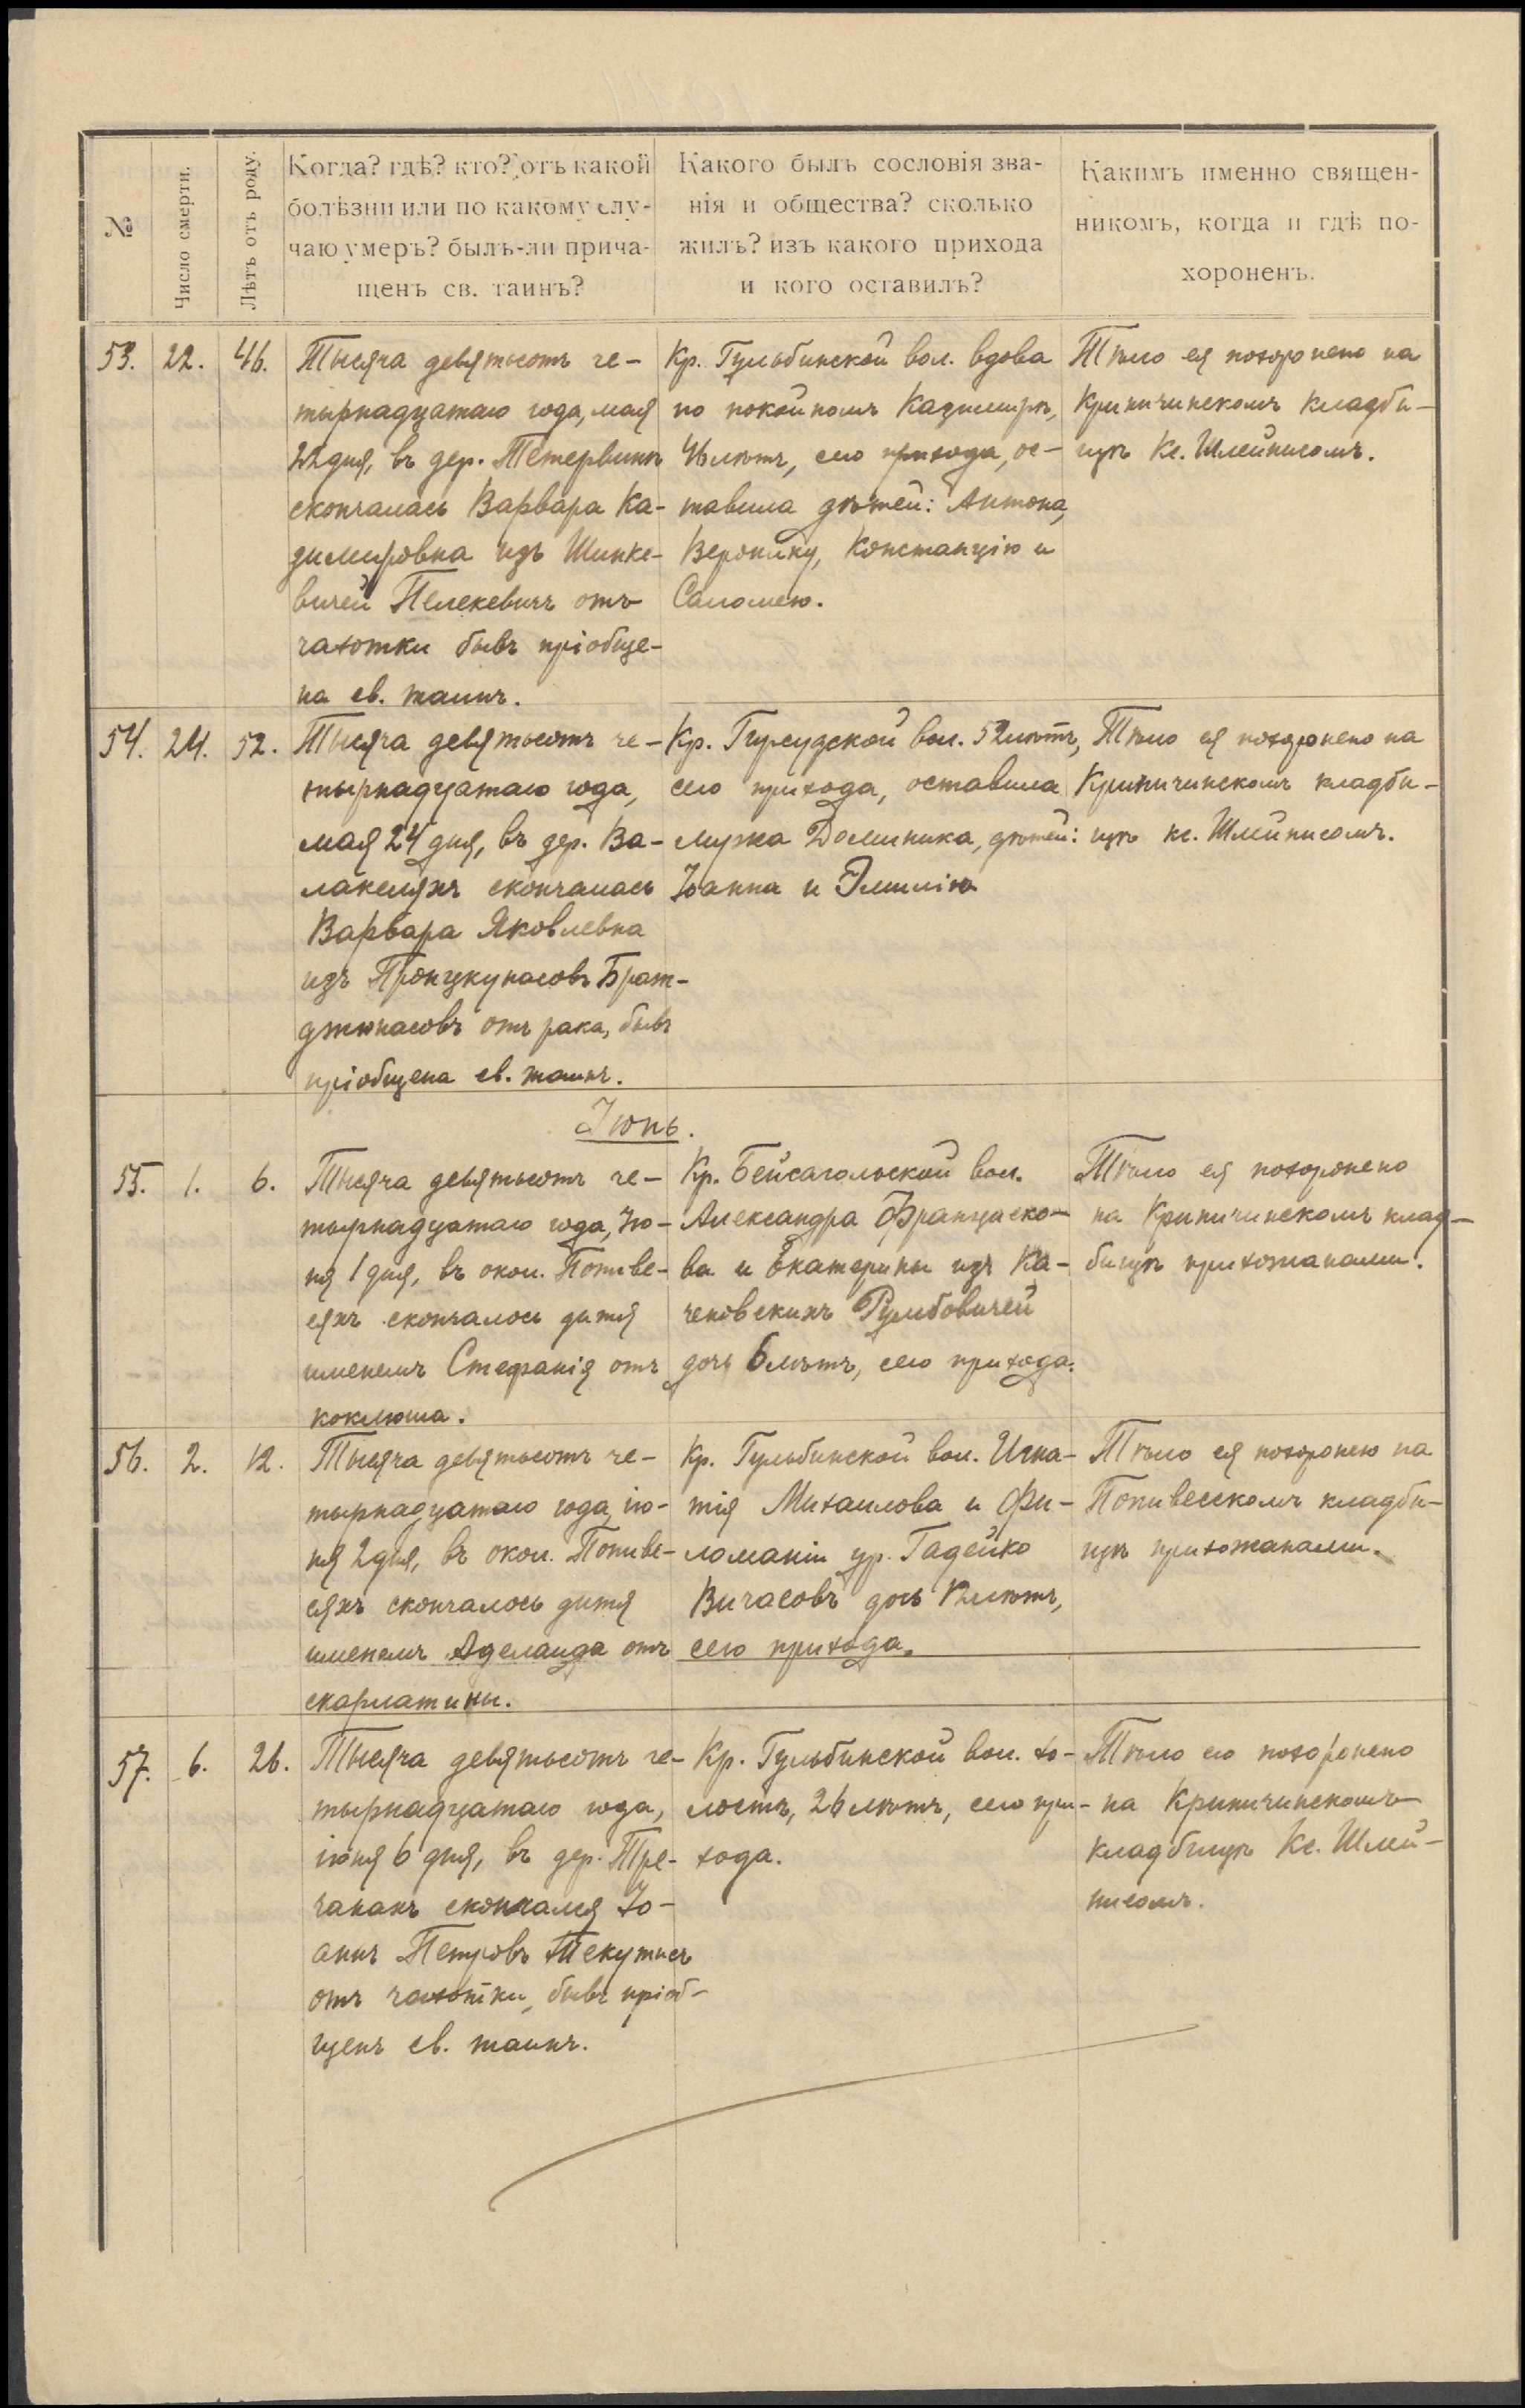 №
Число смерти.
Лѣтъ отъ роду.
Когда? гдѣ? кто? отъ какой
болѣзни или по какому слу-
чаю умеръ? былъ-ли прича-
щенъ св. таинъ?
Какого былъ сословія зва-
нія и общества? сколько
жилъ? изъ какого прихода
и кого оставилъ?
Какимъ именно священ-
никомъ, когда и гдѣ по-
хороненъ.
53. 22. 46.
Тысяча девятьсотъ че-
тырнадцатаго года, мая
22 дня, въ дер. Петервинѣ
скончалась Варвара Ка-
зимировна изъ Шинке-
вичей Пелекевичъ отъ
чахотки бывъ пріобще-
на св. таинъ.
Кр. Гульбинской вол. вдова
по покойномъ Казимирѣ,
46 лѣтъ, сего прихода, ос-
тавила дѣтей: Антона,
Веронику, Констанцію и
Саломею.
Тѣло ея похоронено на
Крипичинскомъ кладби-
щѣ Кс. Шлейнисомъ.
54. 24. 52.
Тысяча девятьсотъ че-
тырнадцатаго года,
мая 24 дня, въ дер. Ва-
лакеляхъ скончалась
Варвара Яковлевна
изъ Пронцкунасовъ Брат-
джюнасовъ отъ рака, бывъ
пріобщена св. таинъ.
Кр. Гирсудской вол. 52 лѣтъ,
сего прихода, оставила
мужа Доминика, дѣтей:
Іоанна и Эмилію
Тѣло ея похоронено на
Крипичинскомъ кладби-
щѣ кс. Шлейнисомъ.
Іюнь.
55. 1. 6.
Тысяча девятьсотъ че-
тырнадцатаго года, Ію-
ня 1 дня, въ окол. Попиве-
сяхъ скончалось дитя
именемъ Стефанія отъ
коклюша.
Кр. Бейсагольской вол.
Александра Франциско-
ва и Екатерины изъ Ка-
чековскихъ Румбовичей
дочь 6 лѣтъ, сего прихода.
Тѣло ея похоронено
на Крипичинскомъ клад-
бищѣ прихожанами.
56. 2. 12.
Тысяча девятьсотъ че-
тырнадцатаго года, ію-
ня 2 дня, въ окол. Попиве-
сяхъ скончалось дитя
именемъ Аделаида отъ
скарлатины.
Кр. Гульбинской вол. Игна-
тія Михаилова и Фи-
ломаніи ур. Гадейко
Вичасовъ дочь 12 лѣтъ,
сего прихода.
Тѣло ея похоронено на
Попивесскомъ кладби-
щѣ прихожанами.
57. 6. 26.
Тысяча девятьсотъ че-
тырнадцатаго года,
іюня 6 дня, въ дер. Пре-
чанахъ скончался Іо-
аннъ Петровъ Текутисъ
отъ чахотки, бывъ пріоб-
щенъ св. таинъ.
Кр. Гульбинской вол. хо-
лостъ, 26 лѣтъ, сего при-
хода.
Тѣло его похоронено
на Крипичинскомъ
кладбищѣ Кс. Шлей-
нисомъ.